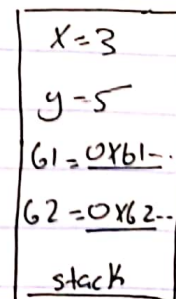 x=3
y=5
61=0x61--
62=0x62--
stack